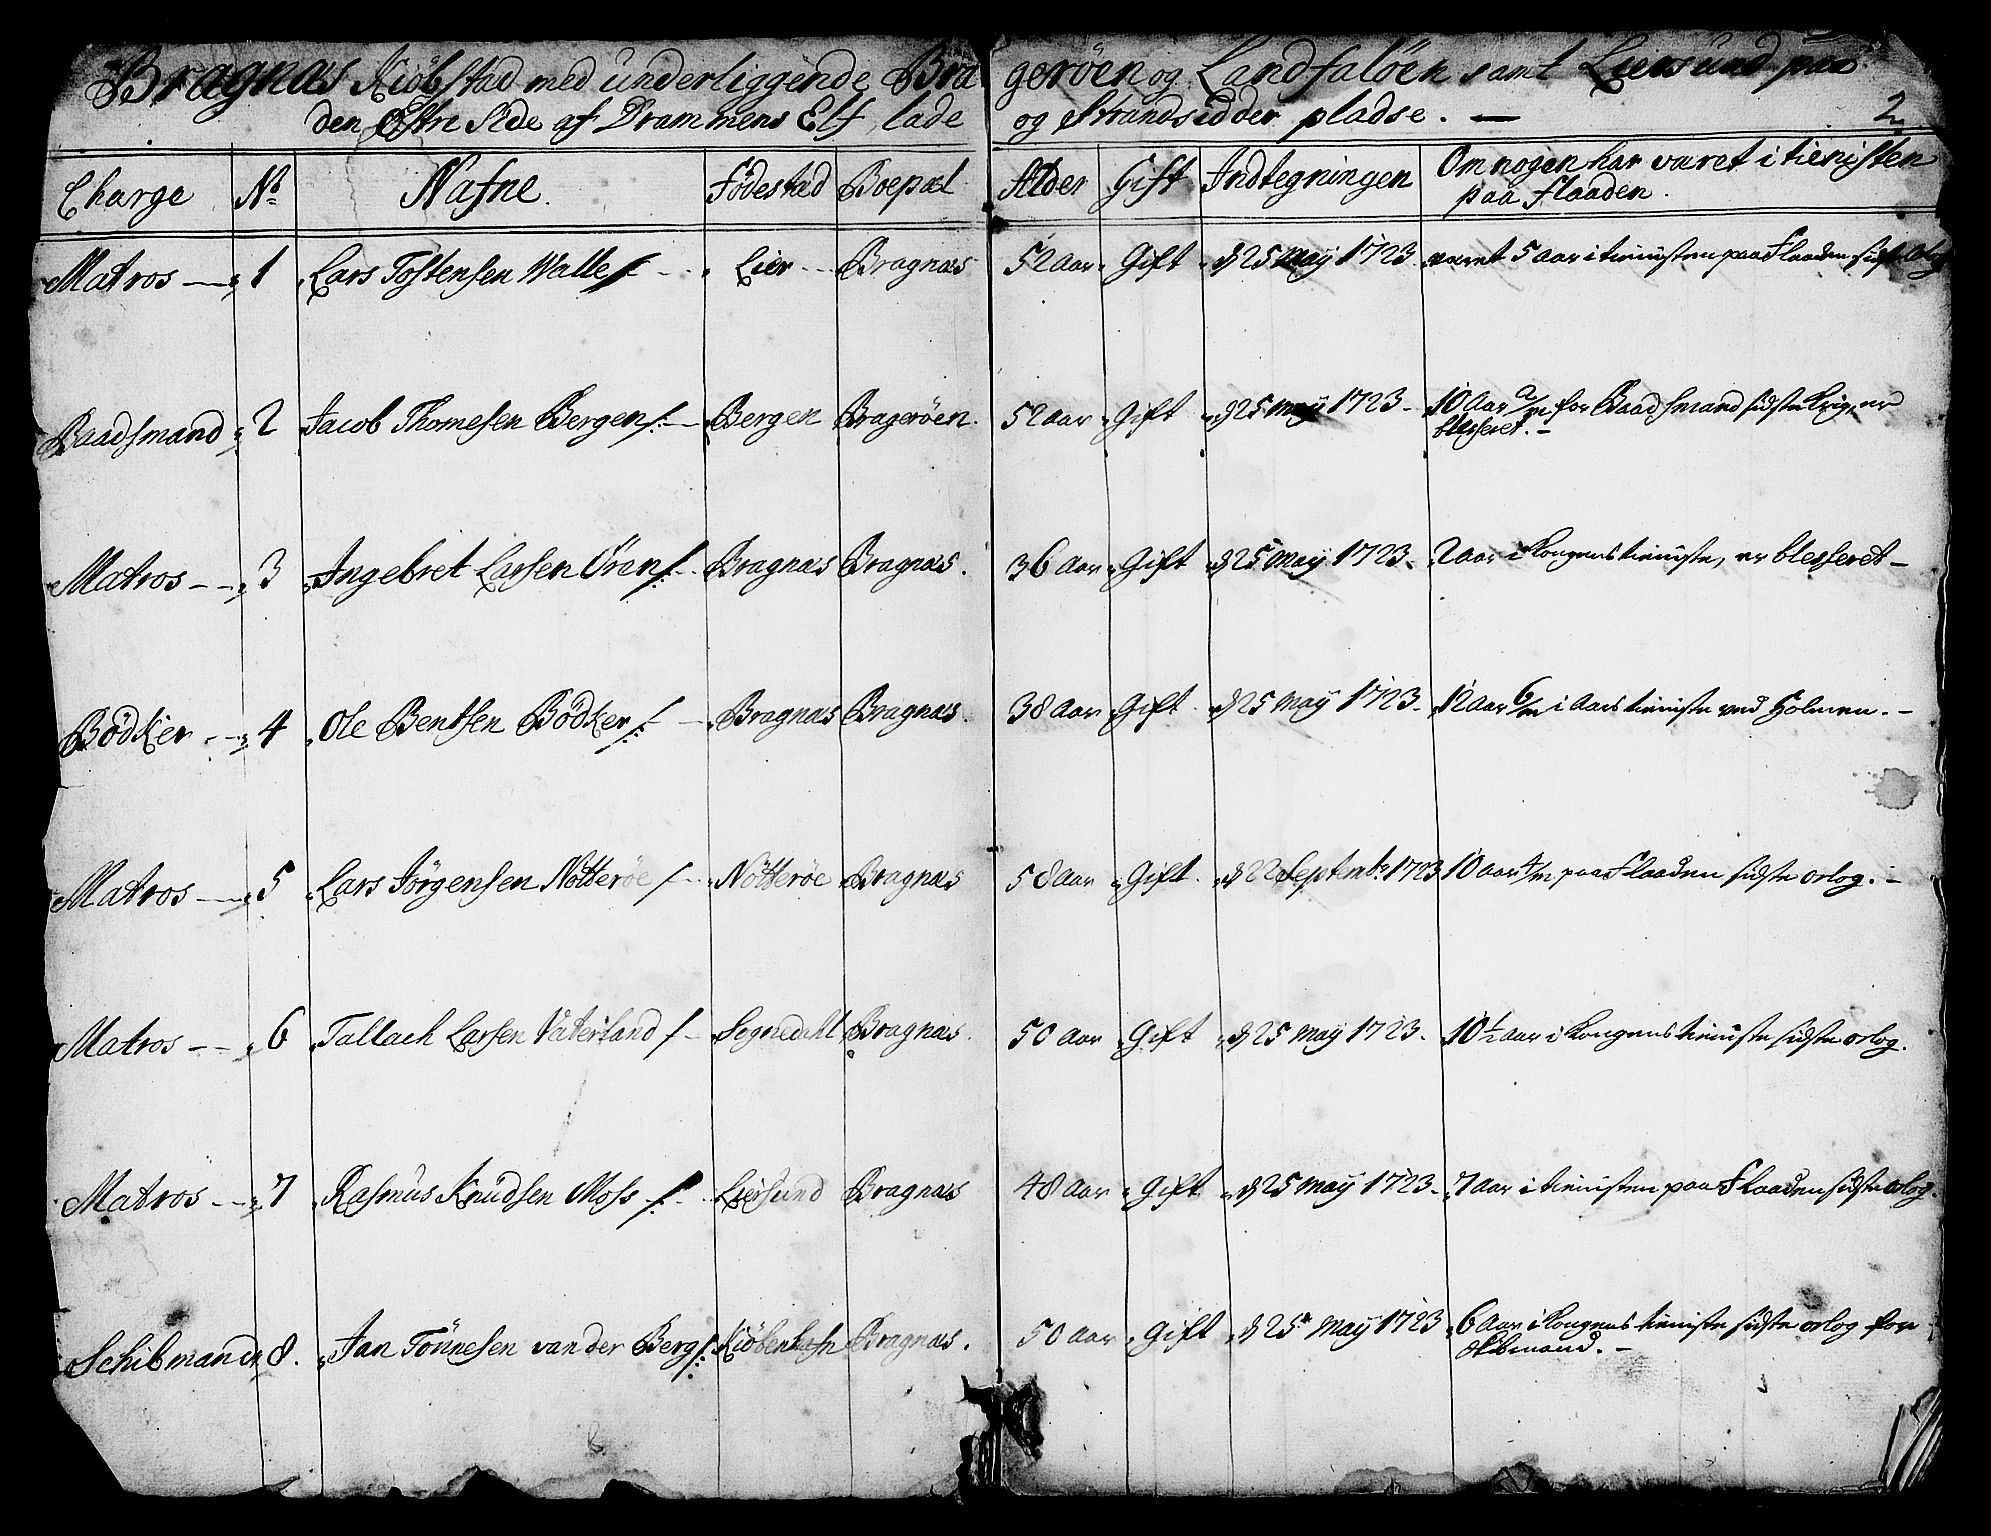 Bragnæs Kiöbstad med underliggende Brageröen og Landfalöen samt Liersund paa
den Östre Side af Drammens Elf, lade og Strandsidder pladse. —
2
Charge No Nafne. Födestad Boepæl Alder Gift Indtegningen Om nogen har været i tienisten
paa Flaaden.
Matros 1 Lars Tostensen Walle Lier Bragnæs 52 aar Gift d 25 Maÿ 1723 været 5 aar i tienisten paa Flaaden sidst orlog
Baadsmand 2 Jacob Thomesen Bergen Bergen Brageröen. 52 aar Gift d 25 Maÿ 1723 10 Aar 2/m for Baadsmand sidste Krig, er
blesseret. —
Matros 3 Ingebret Larsen Ören Bragnæs Bragnæs. 36 Aar Gift d 25 Maÿ 1723. 2 aar i Kongens tieniste, er blesseret —
Bödker 4 Ole Bentsen Bödker Bragnæs Bragnæs. 38 Aar Gift d 25 Maÿ 1723. 12 Aar 6/m i Aars tieniste ved Holmen. —
Matros 5 Lars Jörgensen Nötteröe Nötteröe Bragnæs 58 Aar Gift d 22 Septembr 1723 10 aar 4/m paa Flaaden sidste orlog. —
Matros 6 Tallach Larsen Vaterland Segnedahl Bragnæs. 50 Aar Gift d 25 Maÿ 1723. 10 1/2 aar i Kongens tieniste sidste orlog.
Matros 7 Rasmus Knudsen Moss Liersund Bragnæs 48 Aar Gift d 25 Maÿ 1723. 7 Aar i tienisten paa Flaaden sidste orlog.
Schibmand 8. Jan Tönnesen van der Berg Kiöbenhafn Bragnæs. 50 Aar Gift d 25 Maÿ 1723 6 Aar i Kongens tieniste sidste orlog for
Skibmand. —